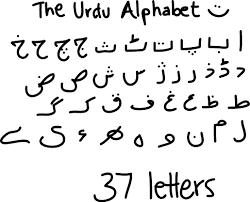 The Urdu Alphabet ت
ا ب پ ت ٹ ث ج چ ح خ
د ڈ ذ ر ز ژ س ش ص ض
ط ظ ع غ ف ق ک گ
ل م ن و ہ ھ ء ی ے
37 letters